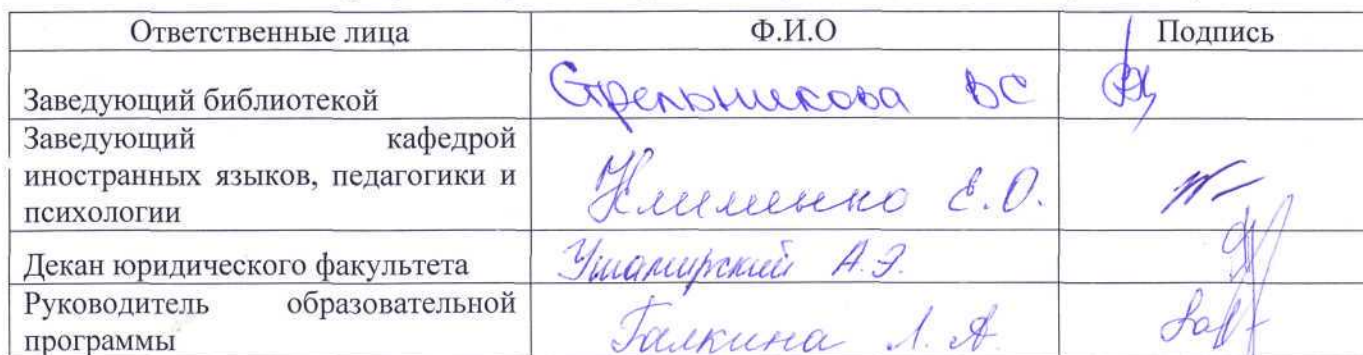 Ответственные лица Ф.И.О Подпись
Заведующий библиотекой Стрельникова ВС
Заведующий кафедрой
иностранных языков, педагогики и
психологии
Клименко Е.О.
Декан юридического факультета Ушамирский А.Э.
Руководитель образовательной
программы
Галкина Л.А.